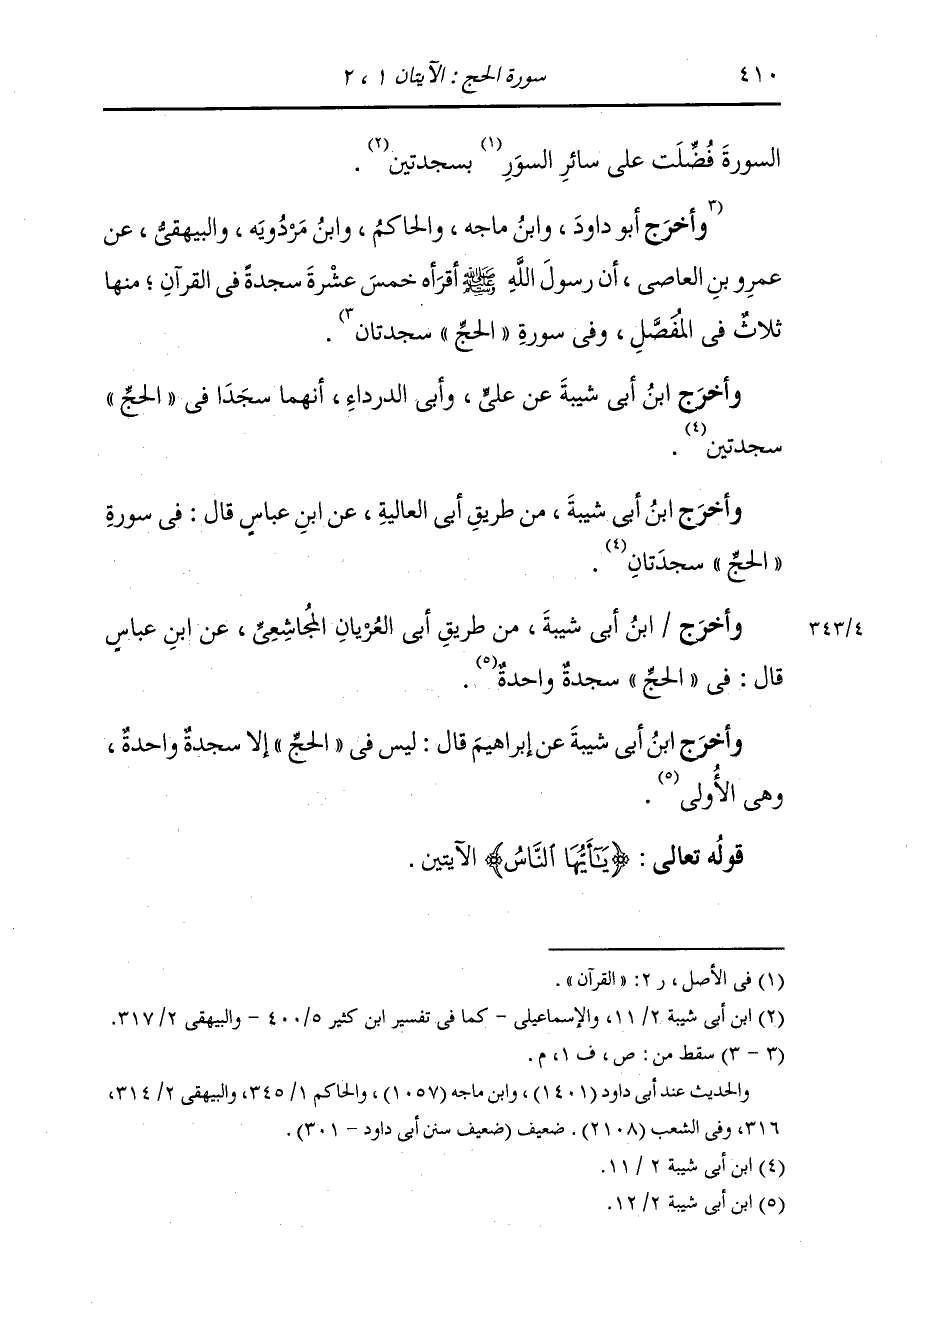 ٤١٠ سورة الحج : الآيتان ١ ، ٢
السورةَ فُضِّلَت على سائرِ السوَرِ(١) بسجدتين(٢) .
(٣وأخرَج أبو داودَ ، وابنُ ماجه ، والحاكمُ ، وابنُ مَرْدُويَه ، والبيهقىُّ ، عن
عمرِو بنِ العاصى ، أن رسولَ اللَّهِ ﷺ أقرَأه خمسَ عشْرةَ سجدةً فى القرآنِ ؛ منها
ثلاثٌ فى المُفَصَّلِ ، وفى سورةِ « الحجِّ » سجدتان٣) .
وأخرَج ابنُ أبى شيبةَ عن علىٍّ ، وأبى الدرداءِ ، أنهما سجَدَا فى « الحجِّ »
سجدتين(٤) .
وأخرَج ابنُ أبى شيبةَ ، من طريقِ أبى العاليةِ ، عن ابنِ عباسٍ قال : فى سورةِ
« الحجِّ » سجدَتانِ(٤) .
٣٤٣/٤ وأخرَج / ابنُ أبى شيبةَ ، من طريقِ أبى العُرْيانِ المُجاشِعِىِّ ، عن ابنِ عباسٍ
قال : فى « الحجِّ » سجدةٌ واحدةٌ(٥) .
وأخرَج ابنُ أبى شيبةَ عن إبراهيمَ قال : ليس فى « الحجِّ » إلا سجدةٌ واحدةٌ ،
وهى الأُولى(٥) .
قولُه تعالى : ﴿يَٰٓأَيُّهَا ٱلنَّاسُ﴾ الآيتين .
(١) فى الأصل ، ر ٢: « القرآن » .
(٢) ابن أبى شيبة ٢/ ١١، والإسماعيلى - كما فى تفسير ابن كثير ٤٠٠/٥ - والبيهقى ٢/ ٣١٧.
(٣ - ٣) سقط من : ص ، ف ١، م .
والحديث عند أبى داود (١٤٠١) ، وابن ماجه (١٠٥٧) ، والحاكم ١/ ٣٤٥، والبيهقى ٢/ ٣١٤،
٣١٦، وفى الشعب (٢١٠٨) . ضعيف (ضعيف سنن أبى داود - ٣٠١) .
(٤) ابن أبى شيبة ٢ / ١١.
(٥) ابن أبى شيبة ٢/ ١٢.